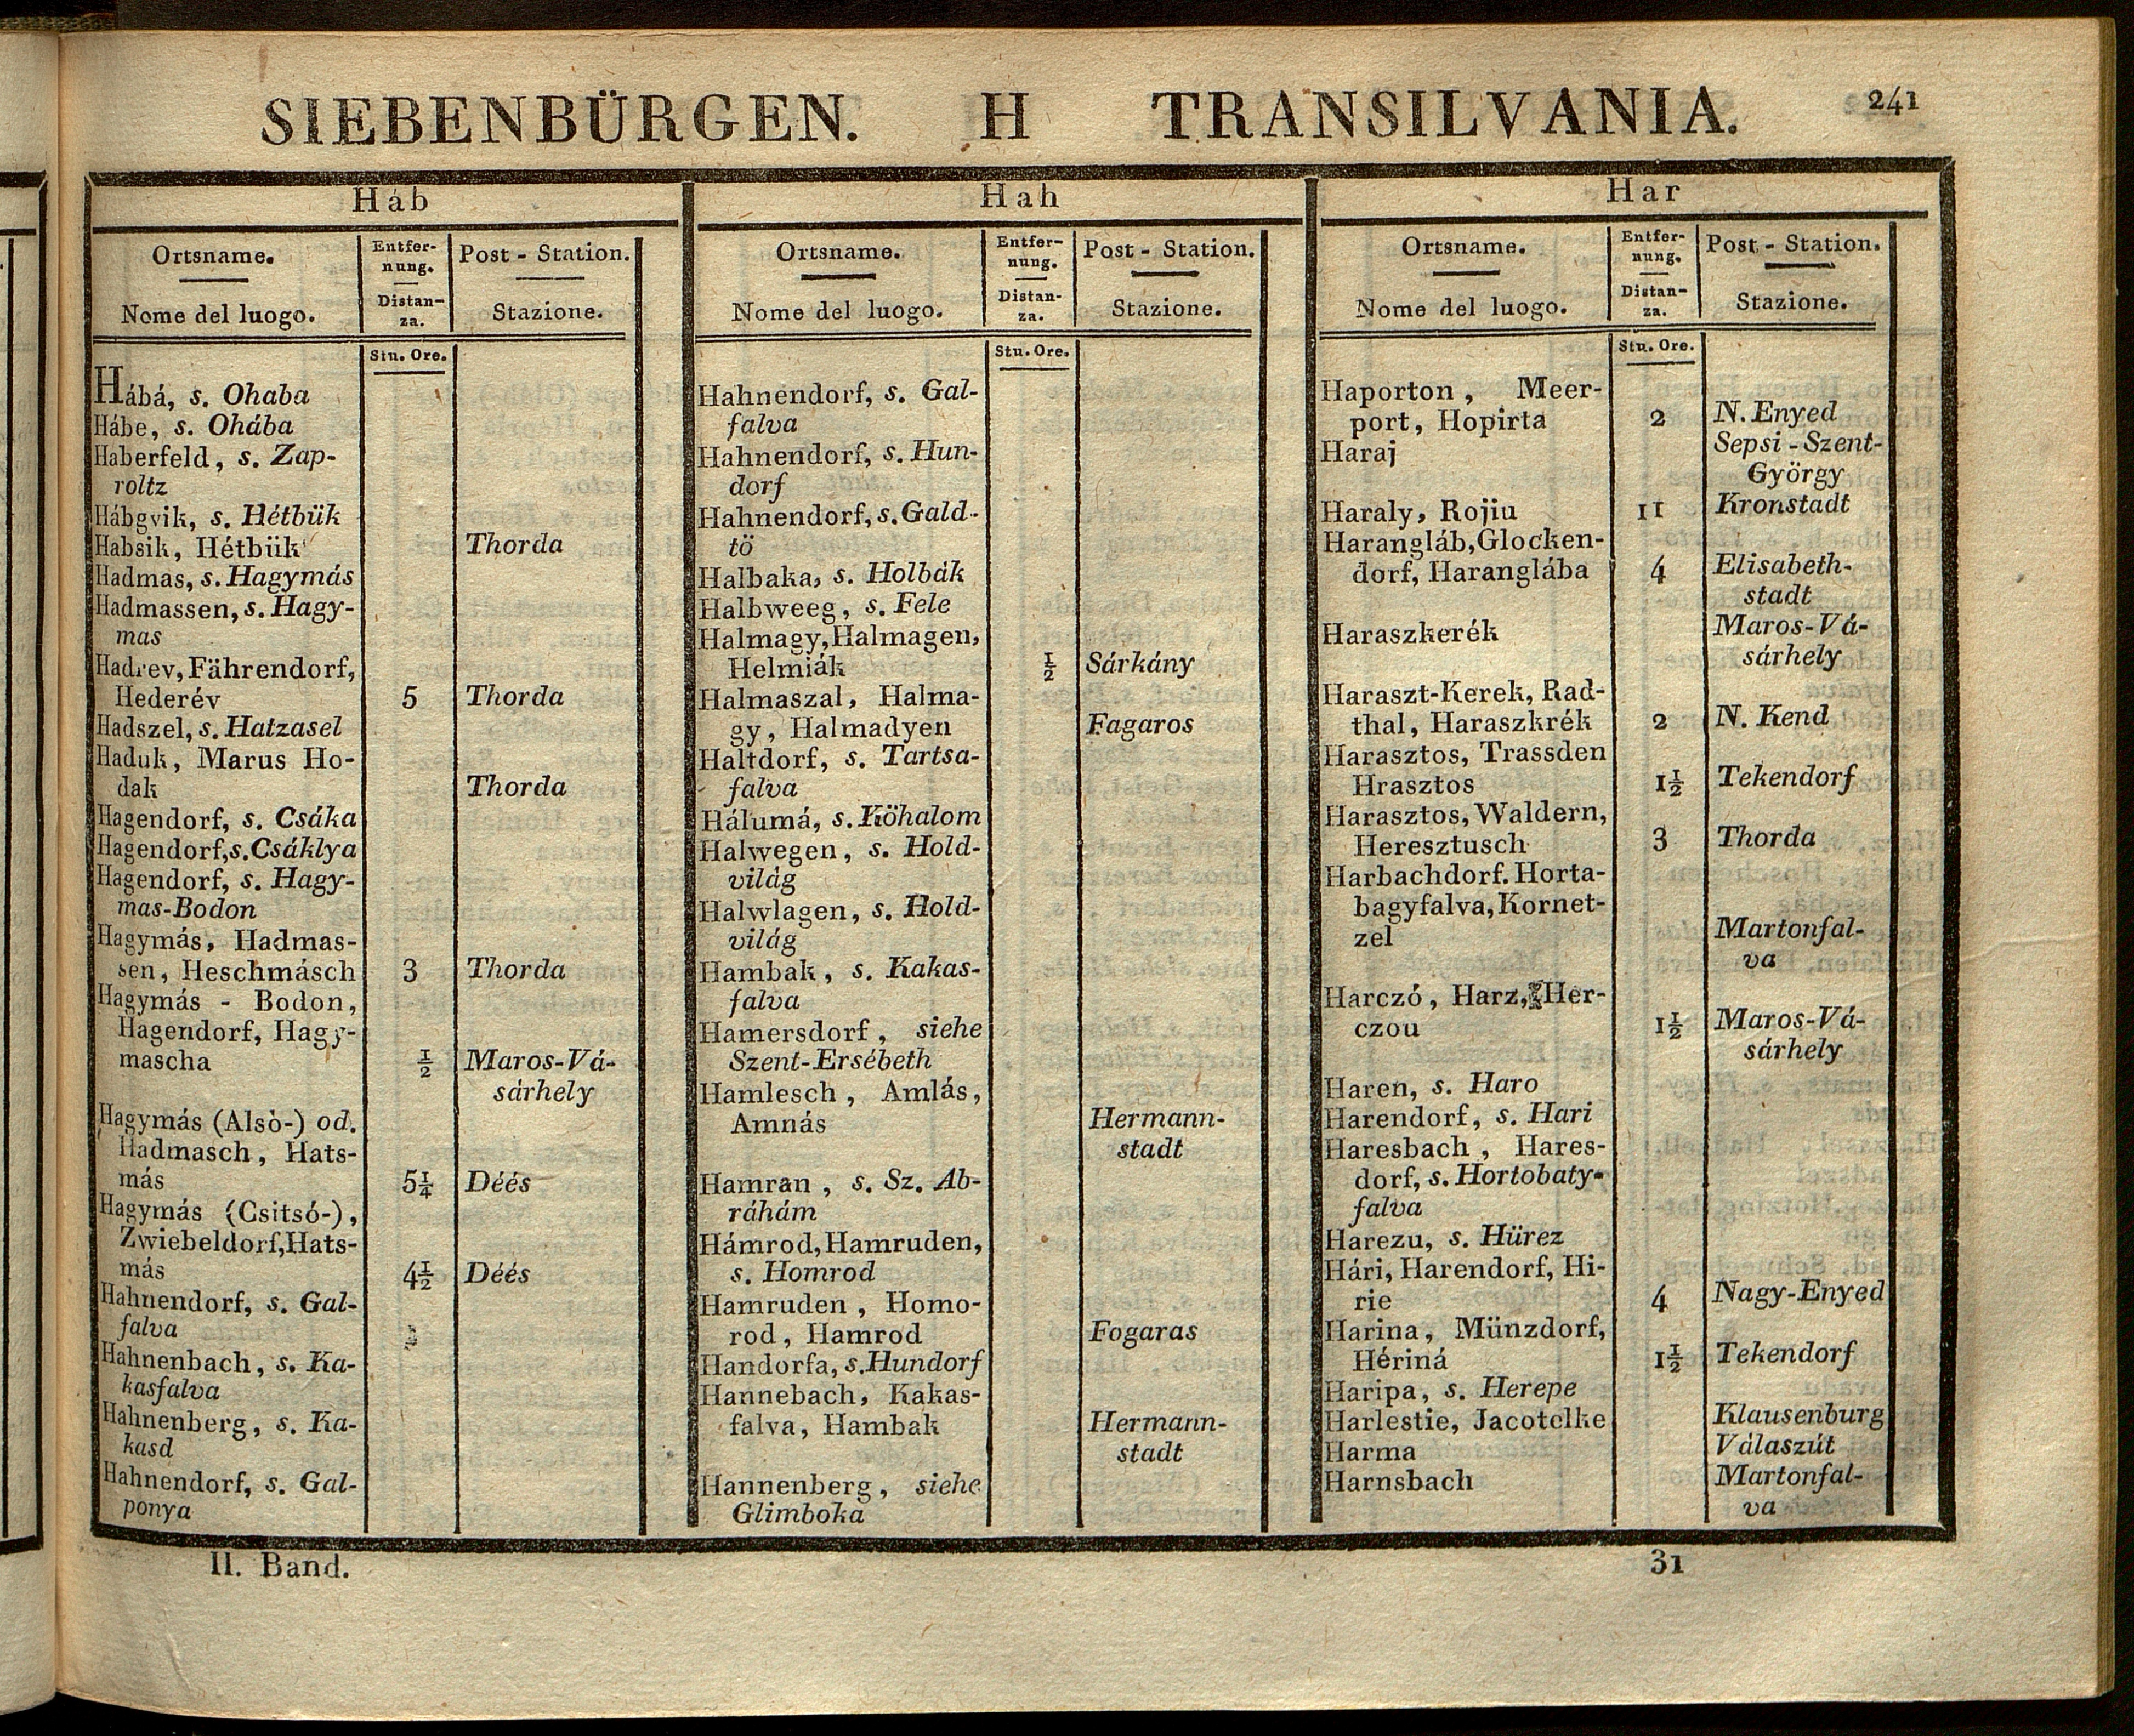 SIEBENBÜRGEN. H TRANSILVANIA. 241
Háb
Ortsname.
Nome del luogo.
Entfer-
nung.
Distan-
za.
Post - Station.
Stazione.
Stu. Ore.
Hábá, s. Ohaba
Hábe, s. Ohába
Haberfeld, s. Zap-
roltz
Hábgvik, s. Hétbük
Habsik, Hétbük Thorda
Hadmas, s. Hagymás
Hadmassen, s. Hagy-
mas
Hadrev, Fährendorf,
Hederév 5 Thorda
Hadszel, s. Hatzasel
Haduk, Marus Ho-
dak Thorda
Hagendorf, s. Csáka
Hagendorf, s. Csáklya
Hagendorf, s. Hagy-
mas-Bodon
Hagymás, Hadmas-
sen, Heschmásch 3 Thorda
Hagymás - Bodon,
Hagendorf, Hagy-
mascha ½ Maros-Vá-
sárhely
Hagymás (Alsò-) od.
Hadmasch, Hats-
más 5¼ Déés
Hagymás (Csitsó-),
Zwiebeldorf, Hats-
más 4½ Déés
Hahnendorf, s. Gal-
falva
Hahnenbach, s. Ka-
kasfalva
Hahnenberg, s. Ka-
kasd
Hahnendorf, s. Gal-
ponya
Hah
Ortsname.
Nome del luogo.
Entfer-
nung.
Distan-
za.
Post - Station.
Stazione.
Stu. Ore.
Hahnendorf, s. Gal-
falva
Hahnendorf, s. Hun-
dorf
Hahnendorf, s. Gald-
tö
Halbaka, s. Holbák
Halbweeg, s. Fele
Halmagy, Halmagen,
Helmiák ½ Sárkány
Halmaszal, Halma-
gy, Halmadyen Fagaros
Haltdorf, s. Tartsa-
falva
Hálumá, s. Köhalom
Halwegen, s. Hold-
világ
Halwlagen, s. Hold-
világ
Hambak, s. Kakas-
falva
Hamersdorf, siehe
Szent-Ersébeth
Hamlesch, Amlás,
Amnás Hermann-
stadt
Hamran, s. Sz. Ab-
ráhám
Hámrod, Hamruden,
s. Homrod
Hamruden, Homo-
rod, Hamrod Fogaras
Handorfa, s. Hundorf
Hannebach, Kakas-
falva, Hambak Hermann-
stadt
Hannenberg, siehe
Glimboka
Har
Ortsname.
Nome del luogo.
Entfer-
nung.
Distan-
za.
Post - Station.
Stazione.
Stu. Ore.
Haporton, Meer-
port, Hopirta 2 N. Enyed
Haraj Sepsi - Szent-
György
Haraly, Rojiu 11 Kronstadt
Harangláb, Glocken-
dorf, Haranglába 4 Elisabeth-
stadt
Haraszkerék Maros-Vá-
sárhely
Haraszt-Kerek, Rad-
thal, Haraszkrék 2 N. Kend
Harasztos, Trassden
Hrasztos 1½ Tekendorf
Harasztos, Waldern,
Heresztusch 3 Thorda
Harbachdorf. Horta-
bagyfalva, Kornet-
zel Martonfal-
va
Harczó, Harz, Her-
czou 1½ Maros-Vá-
sárhely
Haren, s. Haro
Harendorf, s. Hari
Haresbach, Hares-
dorf, s. Hortobaty-
falva
Harezu, s. Hürez
Hári, Harendorf, Hi-
rie 4 Nagy-Enyed
Harina, Münzdorf,
Hériná 1½ Tekendorf
Haripa, s. Herepe
Harlestie, Jacotelke Klausenburg
Harma Válaszút
Harnsbach Martonfal-
va
II. Band. 31